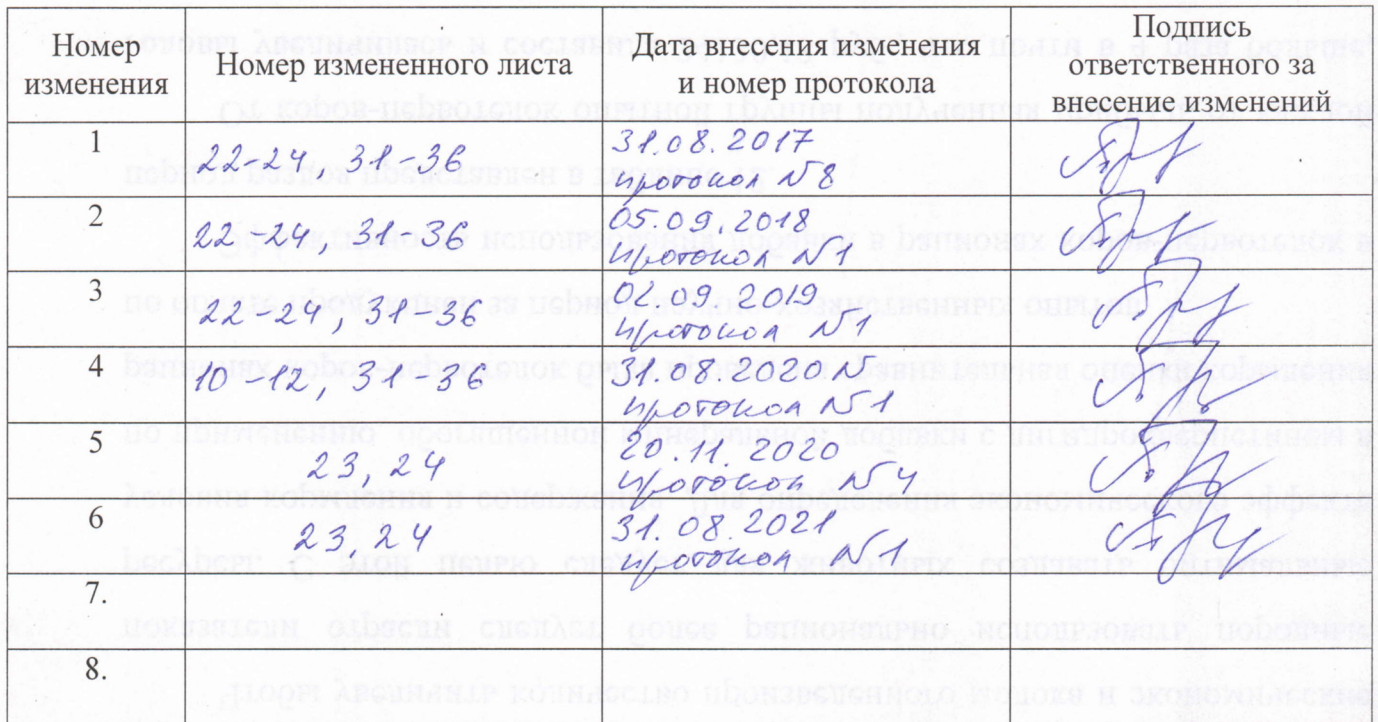 Номер изменения
Номер измененного листа
Дата внесения изменения и номер протокола
Подпись ответственного за внесение изменений
1
22-24, 31-36
31.08.2017
протокол №8
2
22-24, 31-36
05.09.2018
протокол №1
3
22-24, 31-36
02.09.2019
протокол №1
4
10-12, 31-36
31.08.2020 №
протокол №1
5
23, 24
20.11.2020
протокол №4
6
23, 24
31.08.2021
протокол №1
7.
8.